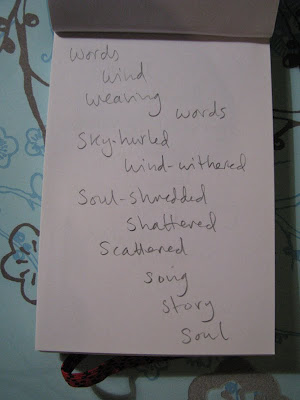 words
wind
weaving
words
sky-hurled
wind-withered
soul-shredded
shattered
scattered
song
story
soul